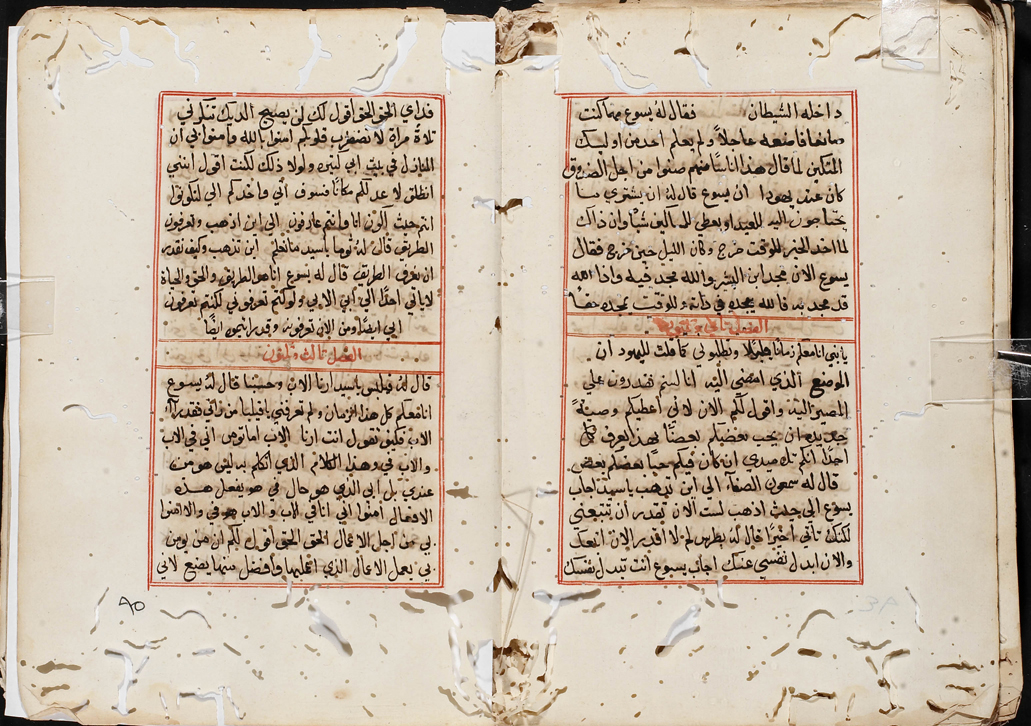 داخله الشيطان فقال له يسوع مهما كنت
صانعا فاصنعه عاجلاً ولم يعلم احد من اوليك
المتكين لما قال هذا اناسًا منهم ظنوا من اجل الصندوق
كان عند يهودا ان يسوع قال له ان يشتري ما
يحتاجون اليه للعيد او يعطي للمساكين شيًا وان ذاك
لما اخذ الخبز للوقت خرج وكان الليل حين خرج فقال
يسوع الان مجد ابن البشر والله مجد فيه واذا الله
قد مجد به فالله يمجده في ذاته وللوقت يمجده
الفصل
يا بني انا معكم زمانا قليلا وتطلبوني كما قلت لليهود ان
الموضع الذي امضي اليه انا لستم تقدرون علي
المصير اليه واقول لكم الان لاني اعطيكم وصيةً
جديده ان يحب بعضكم بعضًا بهذا يعرف كل
احدًا انكم تلاميدي ان كان فيكم حبًا بعضكم بعض
قال له سمعون الصفا الى اين تذهب يا سيد اجاب
يسوع الى حيث اذهب لست الان تقدر ان تتبعني
لكنك تأتي اخيرًا قال له بطرس لم لا اقدر الان اتبعك
والان ابدل نفسي عنك اجاب يسوع انت تبدل نفسك
فداي الحق الحق اقول لك لن يصيح الديك تنكرني
مراة لا تضطرب قلوبكم امنوا بالله وامنوا بي ان
المنازل في بيت ابي كثيره ولولا ذلك لكنت اقول انني
انطلق لاعد لكم مكانًا فسوف آتي واخدكم الي لتكونوا
انتم حيث اكون انا وانتم عارفون الى اين اذهب وتعرفون
الطريق قال له توما يا سيد ما نعلم اين تذهب وكيف نقدر
ان نعرف الطريق قال له يسوع انا هو الطريق والحق والحياة
لا ياتي احدًا الى ابي الا بي ولو كنتم تعرفوني لكنتم تعرفون
ابي ايضًا ومن الان تعرفونه وقد رايتموه ايضًا
الفصل تالت وتلاتون
قال له فيلبس يا سيد ارنا الاب وحسبنا قال له يسوع
انا معكم كل هذا الزمان ولم تعرفني يا فيلبا من راني فقد راء
الاب فكيف تقول انت ارنا الاب اما تومن اني في الاب
والاب في وهذا الكلام الذي اتكلم به ليس هو من
عندي بل ابي الذي هو حال في هو يفعل هذه
الافعال امنوا بي اني انا في الاب والاب هو في والا امنوا
بي من اجل الاعمال الحق الحق اقول لكم ان من يومن
بي يعمل الاعمال الذي اعملها وافضل منها يصنع لاني
٨٥